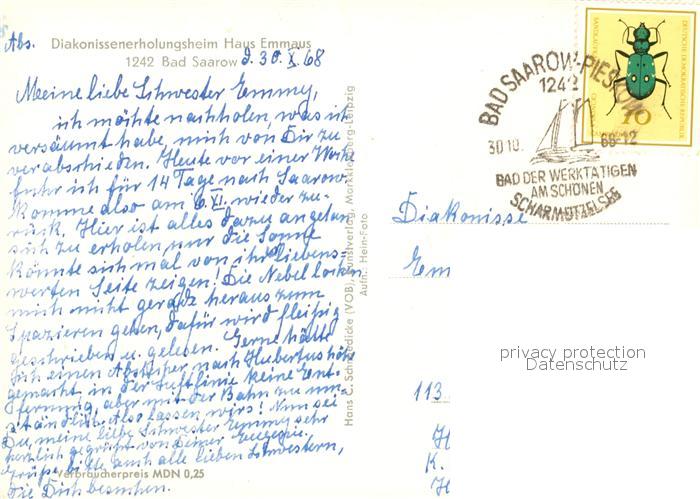 Abs. Diakonissenerholungsheim Haus Emmaus
1242 Bad Saarow d. 30. X. 68
Meine liebe Schwester Emmy,
ich möchte nachholen, was ich
versäumt habe, mich von Dir zu
verabschieden. Heute vor einer Woche
fuhr ich für 14 Tage nach Saarow
komme also am 6. XI. wieder zu-
rück. Hier ist alles dazu angetan
sich zu erholen nur die Sonne
könnte sich mal von ihr liebens-
werten Seite zeigen! Die Nebel locken
mich nicht gerade heraus zum
Spazieren gehen, dafür wird fleißig
geschrieben u. gelesen. Gerne hätte
ich einen Abstecher nach Hubertushöhe
gemacht in der Luftlinie keine Ent-
fernung, aber mit der Bahn zu um-
ständlich. Also lassen wirs! Nun sei
Du, meine liebe Schwester Emmy sehr
herzlich gegrüßt von Deiner
Grüße bitte auch alle lieben Schwestern,
die Dich besuchen.
Verbraucherpreis MDN 0,25
Hans C. Schmiedicke (VOB), Kunstverlag, Markkleeberg-Leipzig
Aufn.: Hein-Foto
BAD SAAROW-PIESKOW
1242
30.10. 68-12
BAD DER WERKTÄTIGEN
AM SCHÖNEN
SCHARMÜTZELSEE
DEUTSCHE DEMOKRATISCHE REPUBLIK
10
Diakonisse
Em
113
H
K.
H
privacy protection
Datenschutz